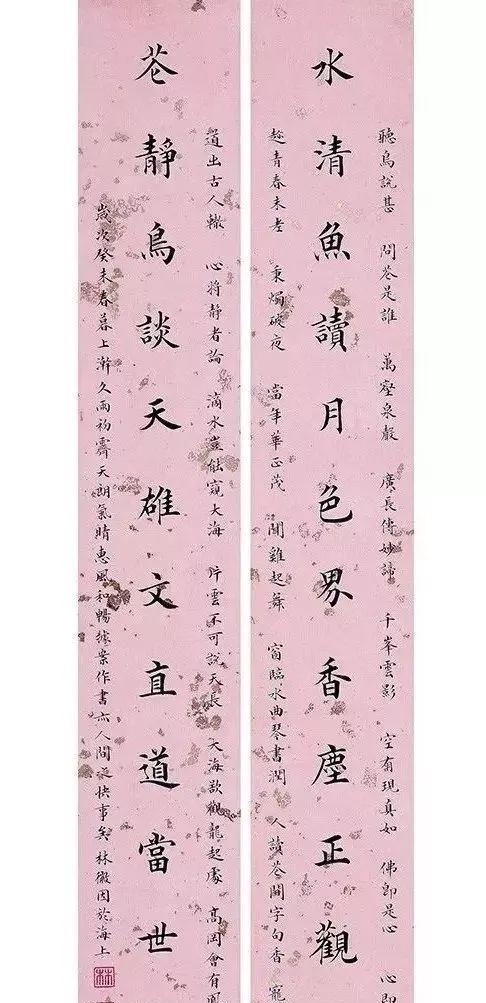 聽鳥說甚 問花是誰 萬壑泉聲 廣長傳妙諦 千峯雲影 空有現真如 佛即是心 心即
水清魚讀月色界香塵正觀
趁青春未老 秉燭破夜 當年華正茂 聞雞起舞 窗臨水曲琴書潤 人讀花間字句香 寵
道出古人轍 心將靜者論 滴水豈能窺大海 片雲不可說天長 大海欲觀龍起處 高岡會有
花靜鳥談天雄文直道當世
歲次癸未春暮上澣久雨初霽天朗氣晴惠風和暢據案作書亦人間快事矣 林徽因於海上
林